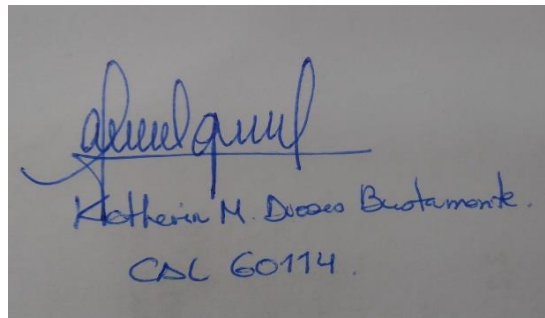 Katherin M. Bustamante.
CAL 60114.